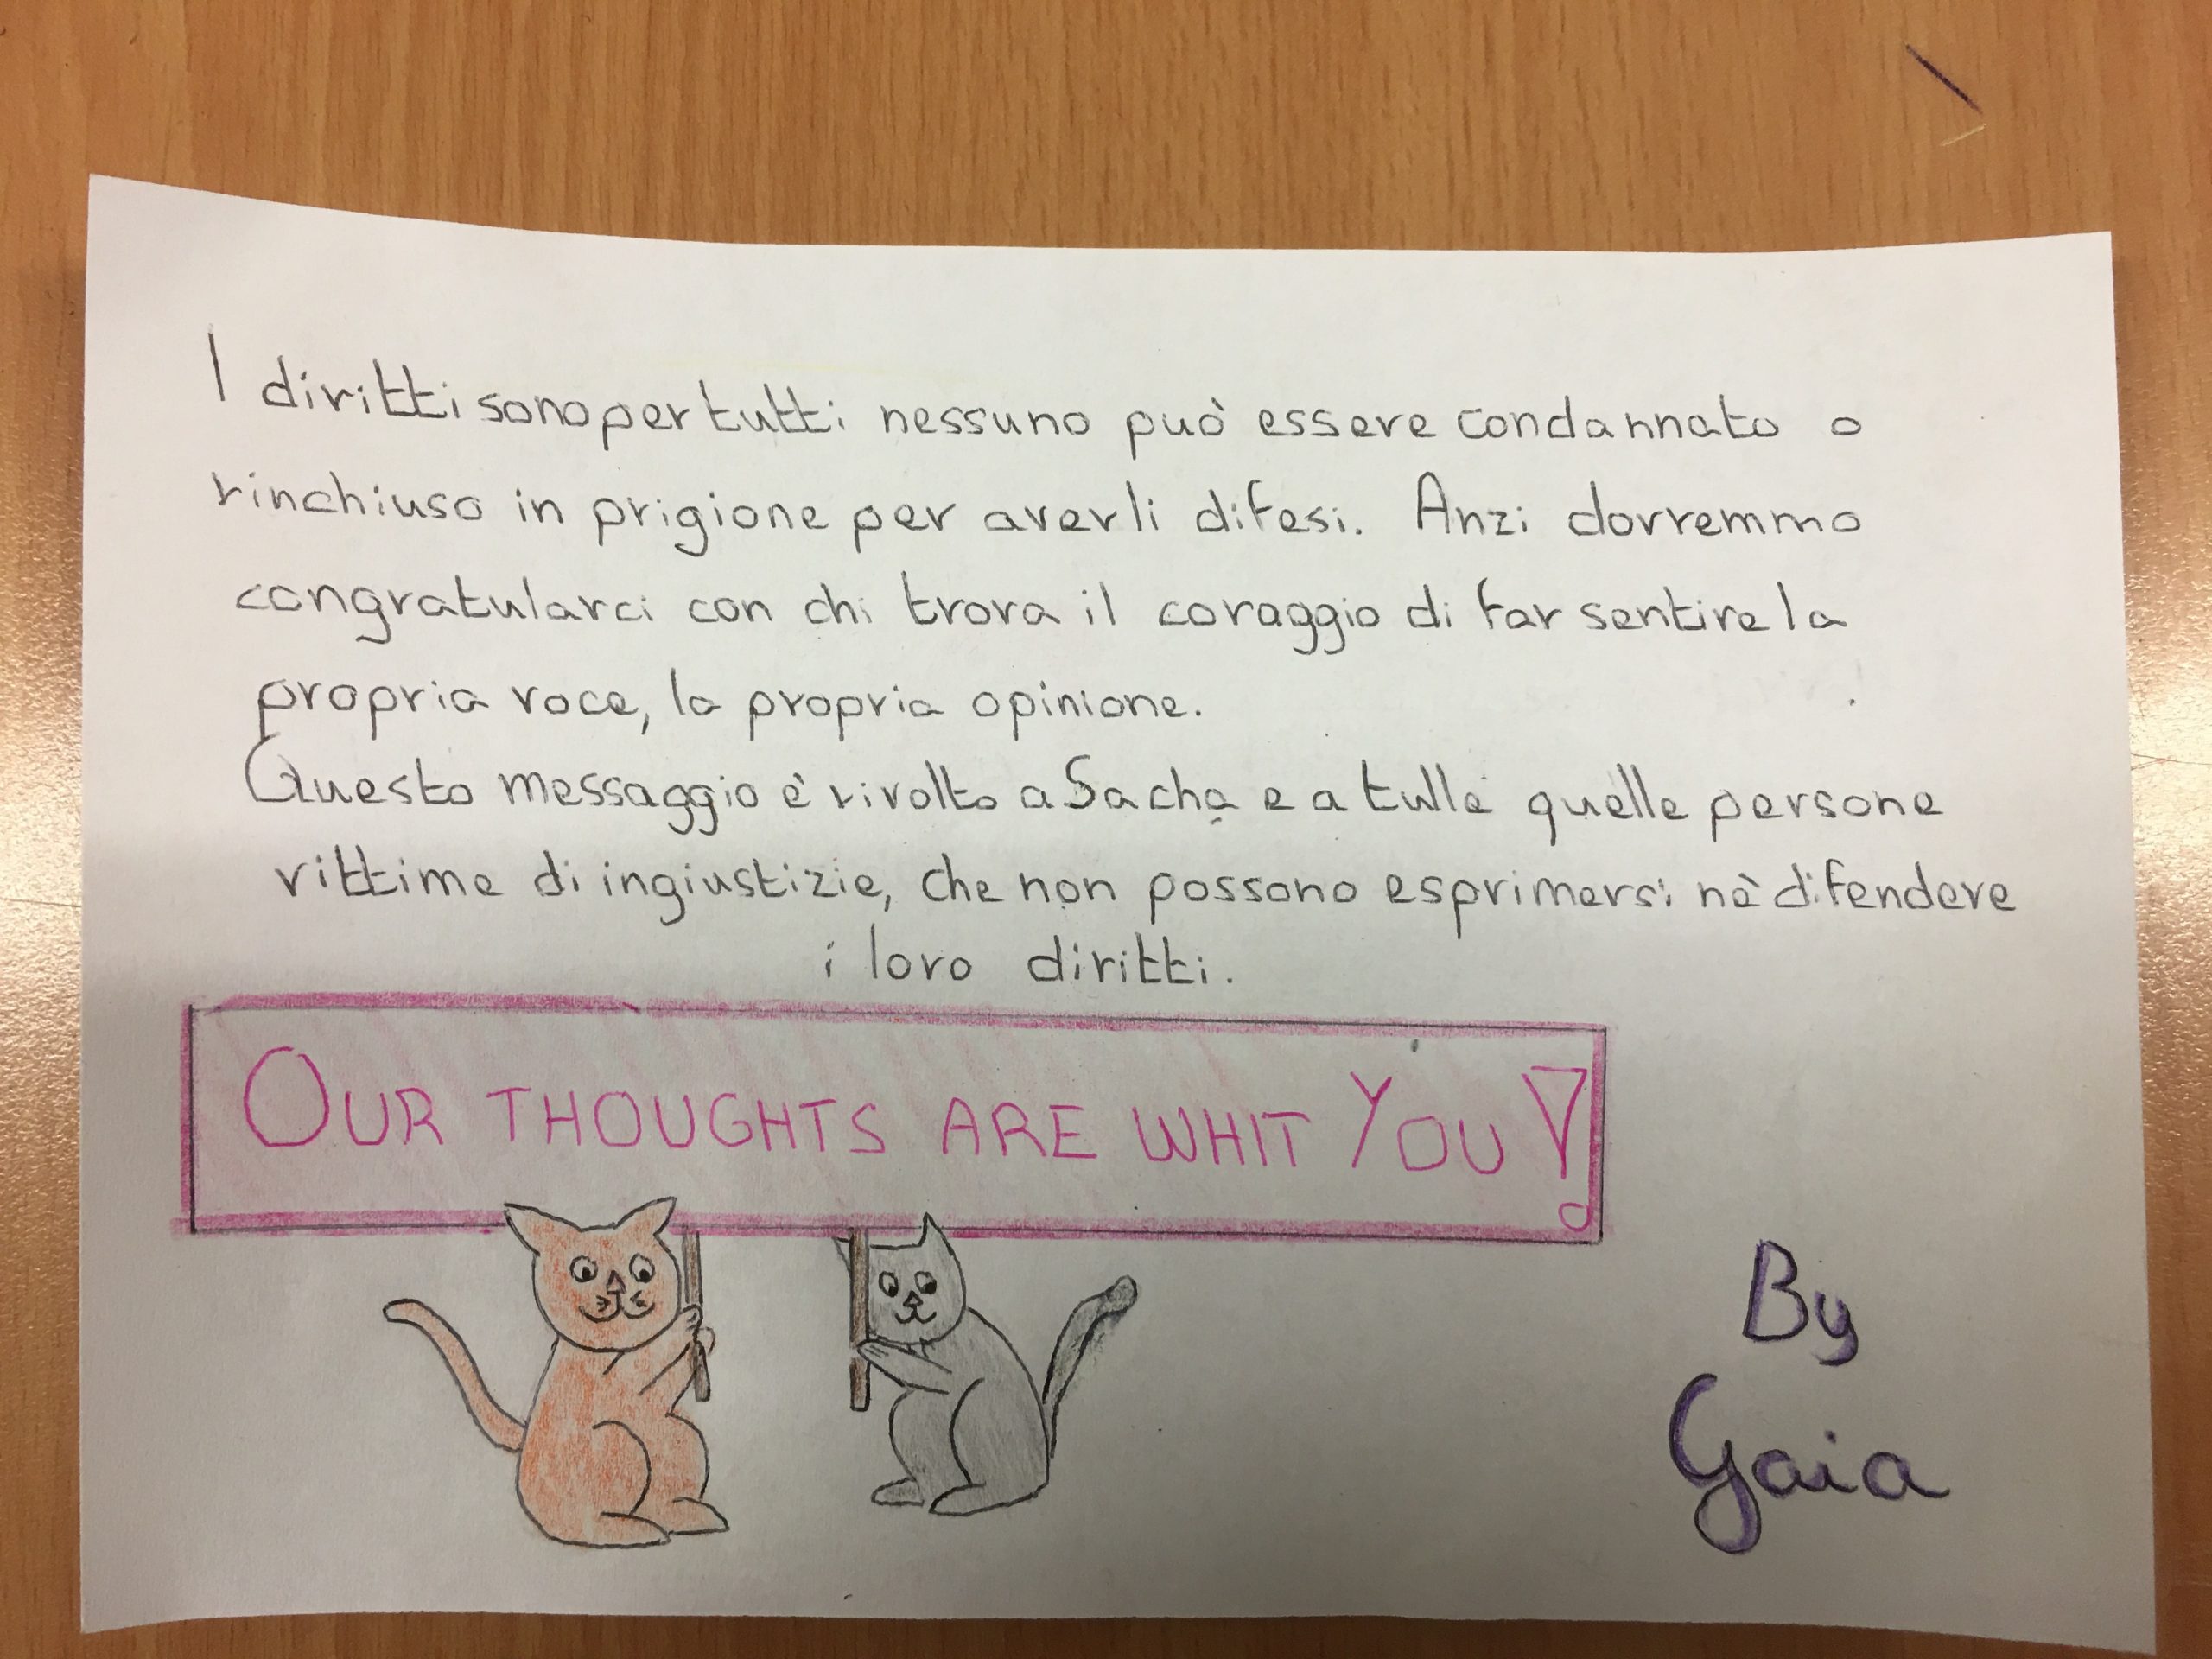 I diritti sono per tutti nessuno può essere condannato o
rinchiuso in prigione per averli difesi. Anzi dovremmo
congratularci con chi trova il coraggio di far sentire la
propria voce, la propria opinione.
Questo messaggio è rivolto a Sacha e a tutte quelle persone
vittime di ingiustizie, che non possono esprimersi nè difendere
i loro diritti.
OUR THOUGHTS ARE WHIT YOU!
By
Gaia